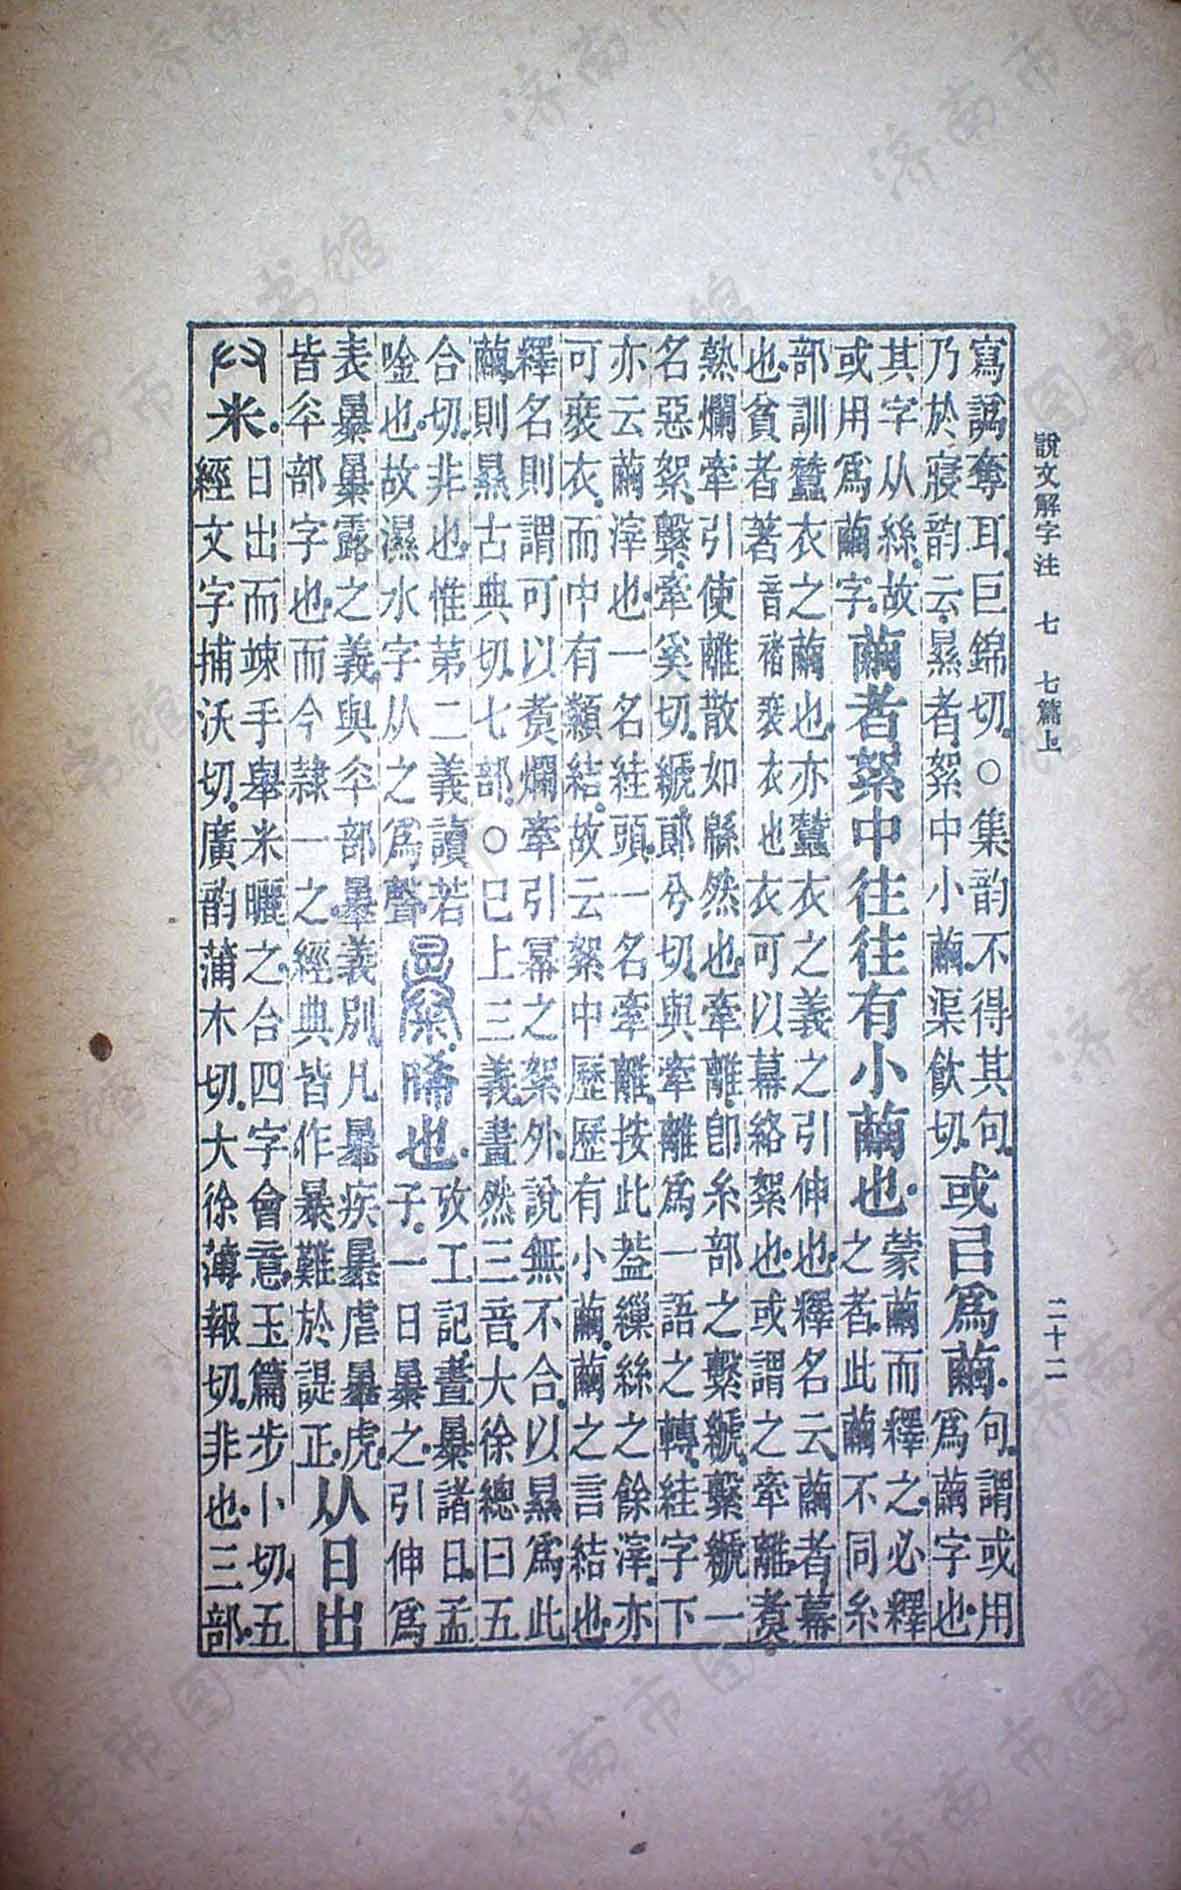 說文解字注　七　七篇上
二十二
寫譌奪耳。巨錦切。○集韵不得其句。
乃於寑韵云。㬎者。絮中小繭。渠飮切。
或㠯爲繭。
句。謂或用
爲繭字也。
其字从絲。故
或用爲繭字。
繭者。絮中往往有小繭也。
蒙繭而釋之。必釋
之者。此繭不同糸
部訓蠶衣之繭也。亦蠶衣之義之引伸也。釋名云。繭者。幕
也。貧者著音褚裦衣也衣可以幕絡絮也。或謂之牽離。煑
熟爛牽引使離散如緜然也。牽離。卽糸部之繫𦃇。繫𦃇一
名惡絮。繫。牽奚切。𦃇。郞兮切。與牽離爲一語之轉。絓字下
亦云繭滓也。一名絓頭。一名牽離。按此葢繅絲之餘滓。亦
可裦衣。而中有纇結。故云絮中歷歷有小繭。繭之言結也。
釋名則謂可以煑爛牽引冪之絮外。說無不合。以㬎爲此
繭。則㬎古典切。七部。○巳上三義。畫然三音。大徐總曰五
合切。非也。惟第二義讀若
唫也。故濕水字从之爲聲。
㬥晞也。
攷工記。晝㬥諸日。孟
子。一日㬥之。引伸爲
表㬥㬥露之義。與夲部㬥義別。凡㬥疾㬥虐㬥虎。
皆夲部字也。而今隸一之。經典皆作暴。難於諟正。
从日出
𠬞米。
日出而竦手舉米曬之。合四字會意。玉篇步卜切。五
經文字捕沃切。廣韵蒲木切。大徐薄報切。非也。三部。